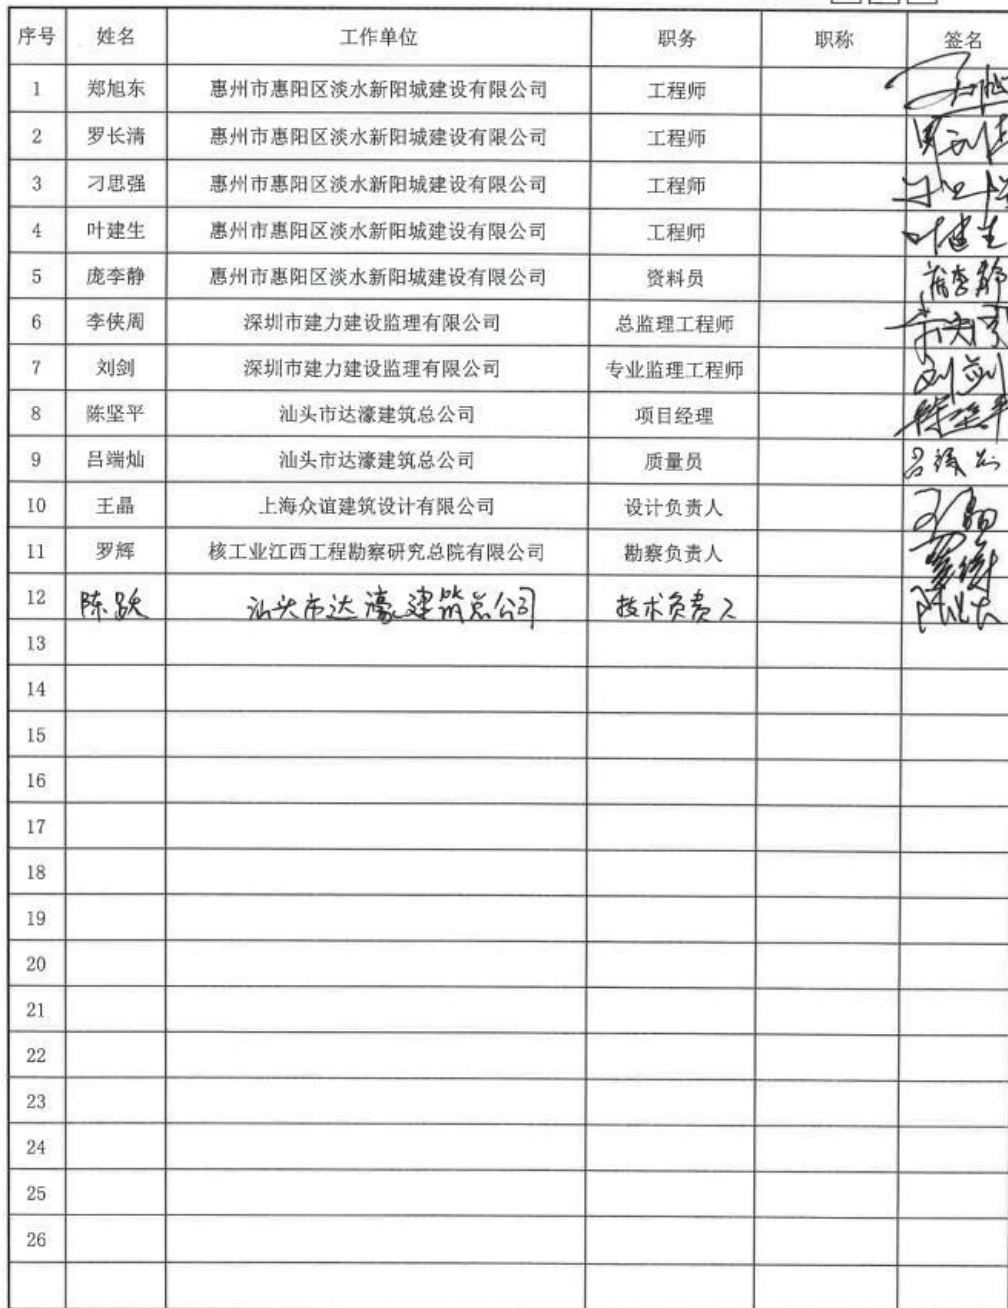 序号 姓名 工作单位 职务 职称 签名
1 郑旭东 惠州市惠阳区淡水新阳城建设有限公司 工程师
2 罗长清 惠州市惠阳区淡水新阳城建设有限公司 工程师
3 刁思强 惠州市惠阳区淡水新阳城建设有限公司 工程师
4 叶建生 惠州市惠阳区淡水新阳城建设有限公司 工程师 叶建生
5 庞李静 惠州市惠阳区淡水新阳城建设有限公司 资料员
6 李侠周 深圳市建力建设监理有限公司 总监理工程师
7 刘剑 深圳市建力建设监理有限公司 专业监理工程师 刘剑
8 陈坚平 汕头市达濠建筑总公司 项目经理 陈坚平
9 吕端灿 汕头市达濠建筑总公司 质量员
10 王晶 上海众谊建筑设计有限公司 设计负责人
11 罗辉 核工业江西工程勘察研究总院有限公司 勘察负责人
12 陈跃 汕头市达濠建筑总公司 技术负责人
13
14
15
16
17
18
19
20
21
22
23
24
25
26